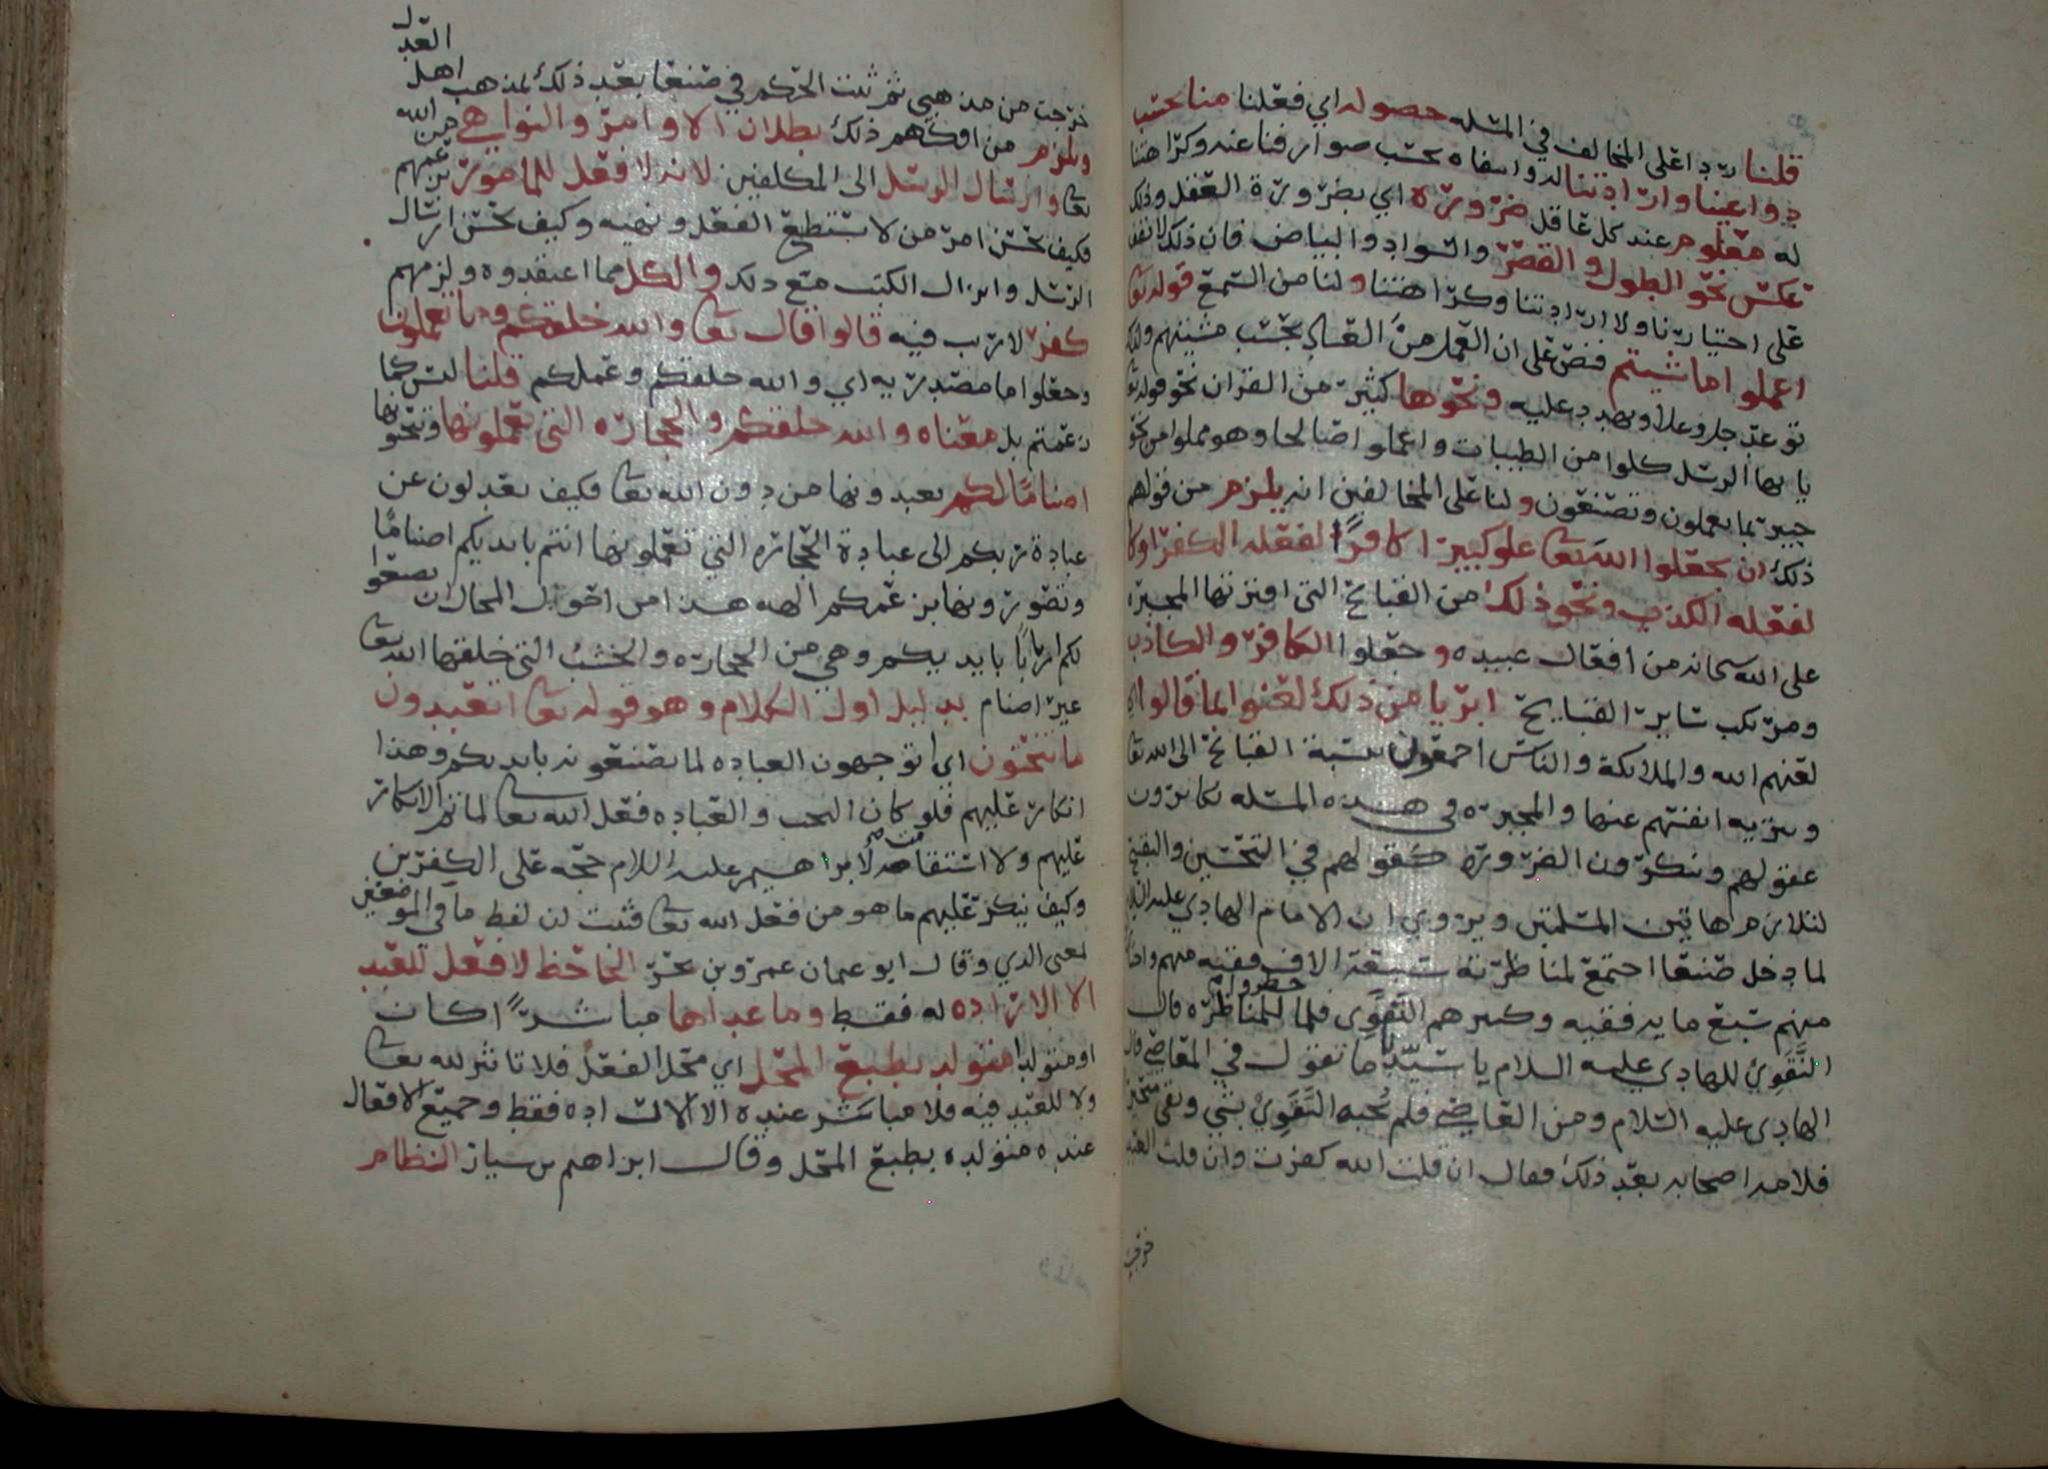 قلنا ردا على المخالف في المسله حصوله اي فعلنا منا بحسب
دواعينا وارادتنا له وانتفاه بحسب صوارفنا عنه وكراهتنا
له معلوم عند كل عاقل ضرورة اي بضرورة العقل وذلك
عكس نحو الطول والقصر والسواد والبياض فان ذلك لا يقف
على اختيارنا ولا ارادتنا وكراهتنا ولنا من السمع قوله تعا
اعملوا ما شيتم فنص على ان العمل من العباد بحسب مشيتهم وذلك
توعد جل وعلا وتهدد عليه ونحوها كثير من القران نحو قوله تعا
يا يها الرسل كلوا من الطيبات واعملوا صالحا وهو مملوا من نحو
خبير بما يعملون وتصنعون ولنا على المخالفين انه يلزم من قولهم
ذلك ان يجعلوا الله تعا علو كبيرا كافرًا لفعله الكفر او كا
لفعله الكذب ونحو ذلك من القبائح التي افترتها المجبره
على الله سبحانه من افعال عبيده وجعلوا الكافر والكاذب
ومرتكب ساير القبايح ابريا من ذلك لعنوا بما قالوا اي
لعنهم الله والملائكة والناس اجمعون بنسبة القبائح الى الله تعا
وتنزيه انفسهم عنها والمجبره في هذه المسله يكابرون
عقولهم وينكرون الضروره كقولهم في التحسين والتقبيح
لتلازم هاتين المسلتين ويروى ان الامام الهادي عليه السلام
لما دخل صنعا اجتمع لمناظرته سبعة الاف فقيه منهم واختا
منهم سبع مايه فقيه وكبيرهم النَّقَوِي فلما حضروا للمناظره قال
النَّقَوِيُّ للهادي عليه السلام يا سيدنا ما تقول في المعاصي قال
الهادى عليه السلام ومن العاصي فلم يُجبه النَّقَوِيْ بشي وبقى متحير
فلامه اصحابه بعد ذلك فقال ان قلت الله كفرت وان قلت العبد
خرجت
خرجت من مذهبي ثم ثبت الحكم في صنعا بعد ذلك لمذهب اهل العدل
ويلزم من افكهم ذلك بطلان الاوامر والنواهي من الله
تعا وارسال الرسل الى المكلفين لانه لا فعل للمامور بزعمهم
فكيف يحسن امر من لا يستطيع الفعل ونهيه وكيف يحسن ارسال
الرسل وانزال الكتب مع ذلك والكل مما اعتقدوه ولزمهم
كفر لا ريب فيه قالوا قال تعا والله خلقكم وما تعملون
وجعلوا ما مصدريه اي والله خلقكم وعملكم قلنا ليس كما
زعمتم بل معناه والله خلقكم والحجاره التي تعملونها وتنحتونها
اصنامًا لكم تعبدونها من دون الله تعا فكيف تعدلون عن
عبادة ربكم الى عبادة الحجاره التي تعملونها انتم بايديكم اصنامًا
وتصورونها بزعمكم الهه هذا من احول المحال ان تصنعوا
لكم اربابًا بايديكم وهي من الحجاره والخشب التي خلقها الله تعا
غير اصنام بدليل اول الكلام وهو قوله تعا اتعبدون
ما تنحتون اي اتوجهون العباده لما تصنعونه بايديكم وهذا
انكار عليهم فلو كان النحت والعباده فعل الله تعا لما تم الانكار
عليهم ولا استقامت لابراهيم عليه السلام حجه على الكفرين
وكيف ينكر عليهم ما هو من فعل الله تعا فثبت ان لفظ ما في الموضعين
لمعنى الذي وقال ابو عثمان عمرو بن بحر الجاحظ لا فعل للعبد
الا الاراده له فقط وما عداها مباشرًا كان
او متولدا متولد بطبع المحل اي محل الفعل فلا تاثر لله تعا
ولا للعبد فيه فلا مباشر عنده الا الاراده فقط وجميع الافعال
عنده متولده بطبع المحل وقال ابراهيم بن سيار النظام